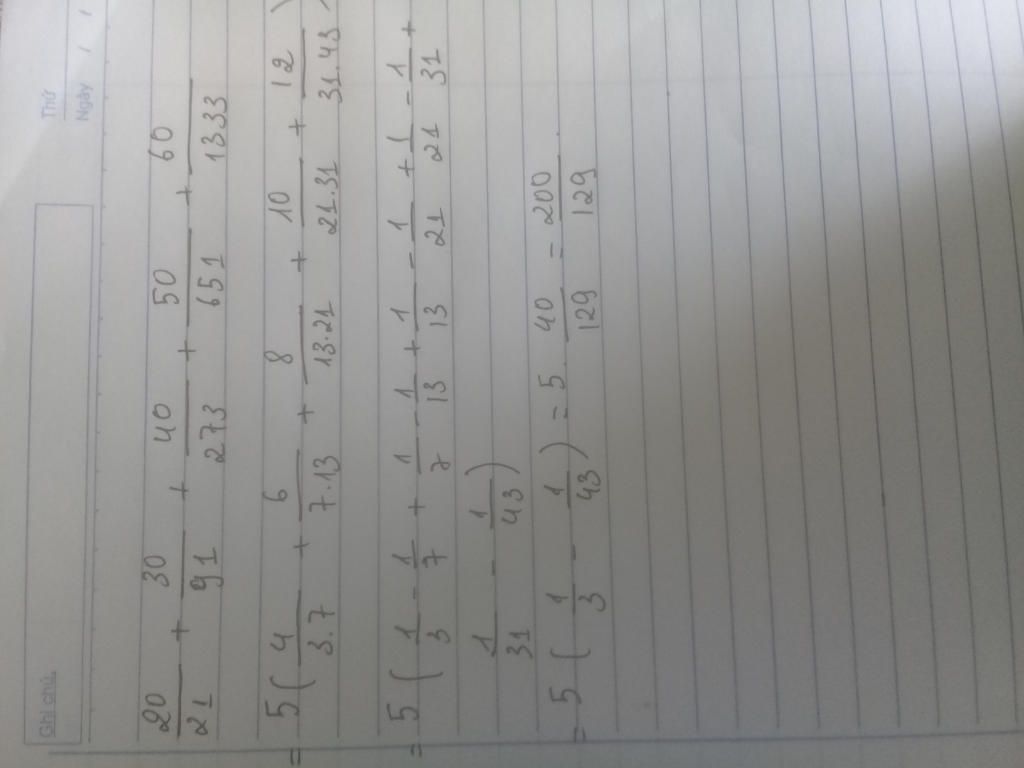 Ghi chú.
Thứ
Ngày / /
20/21 + 30/91 + 40/273 + 50/651 + 60/1333
= 5 ( 4/3.7 + 6/7.13 + 8/13.21 + 10/21.31 + 12/31.43 )
= 5 ( 1/3 - 1/7 + 1/7 - 1/13 + 1/13 - 1/21 + 1/21 - 1/31 +
1/31 - 1/43 )
= 5 ( 1/3 - 1/43 ) = 5 . 40/129 = 200/129 .